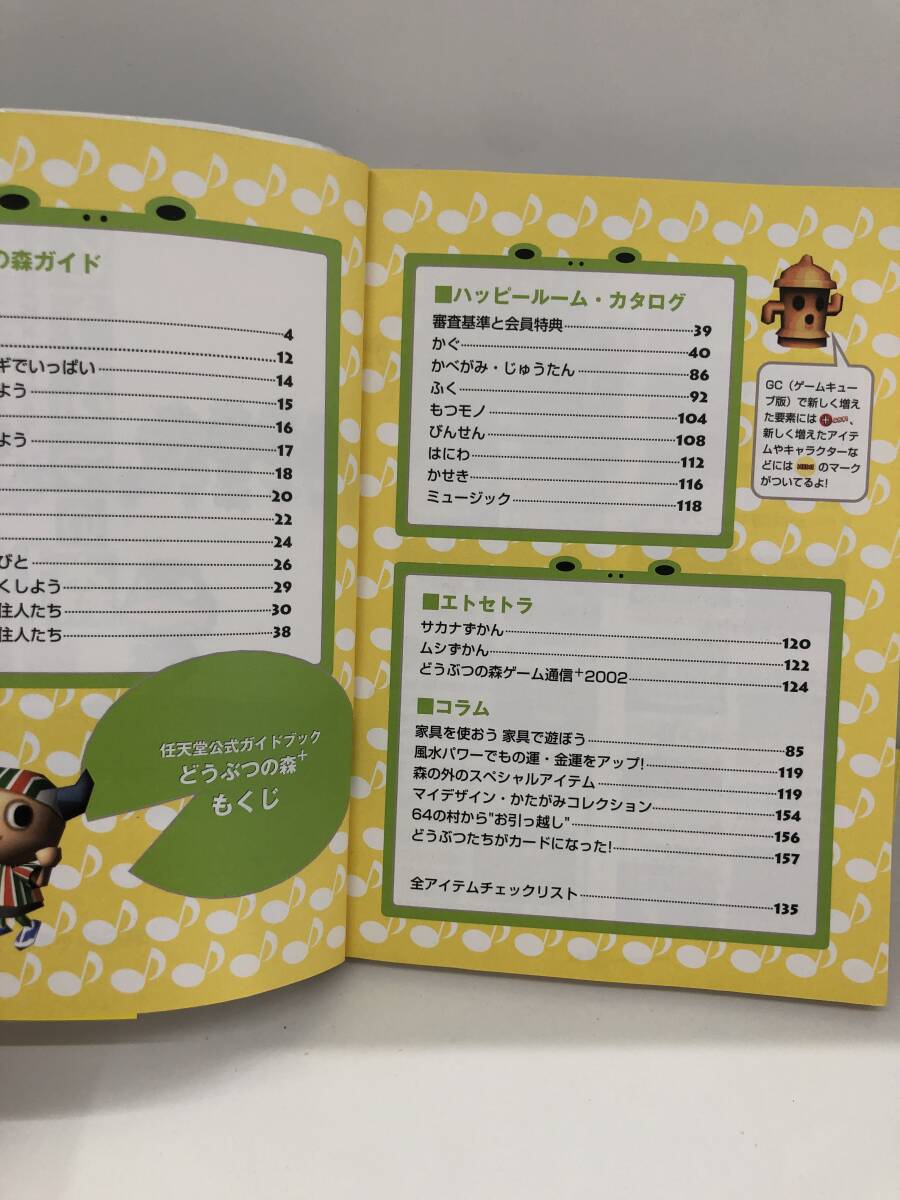 の森ガイド
4
12
ギでいっぱい 14
よう 15
16
よう 17
18
20
22
24
びと 26
くしよう 29
住人たち 30
住人たち 38
任天堂公式ガイドブック
どうぶつの森+
もくじ
■ハッピールーム・カタログ
審査基準と会員特典 39
かぐ 40
かべがみ・じゅうたん 86
ふく 92
もつモノ 104
びんせん 108
はにわ 112
かせき 116
ミュージック 118
GC(ゲームキュー
ブ版)で新しく増え
た要素には、
新しく増えたアイテ
ムやキャラクターな
どには のマーク
がついてるよ!
■エトセトラ
サカナずかん 120
ムシずかん 122
どうぶつの森ゲーム通信+2002 124
■コラム
家具を使おう 家具で遊ぼう 85
風水パワーでもの運・金運をアップ! 119
森の外のスペシャルアイテム 119
マイデザイン・かたがみコレクション 154
64の村から"お引っ越し" 156
どうぶつたちがカードになった! 157
全アイテムチェックリスト 135